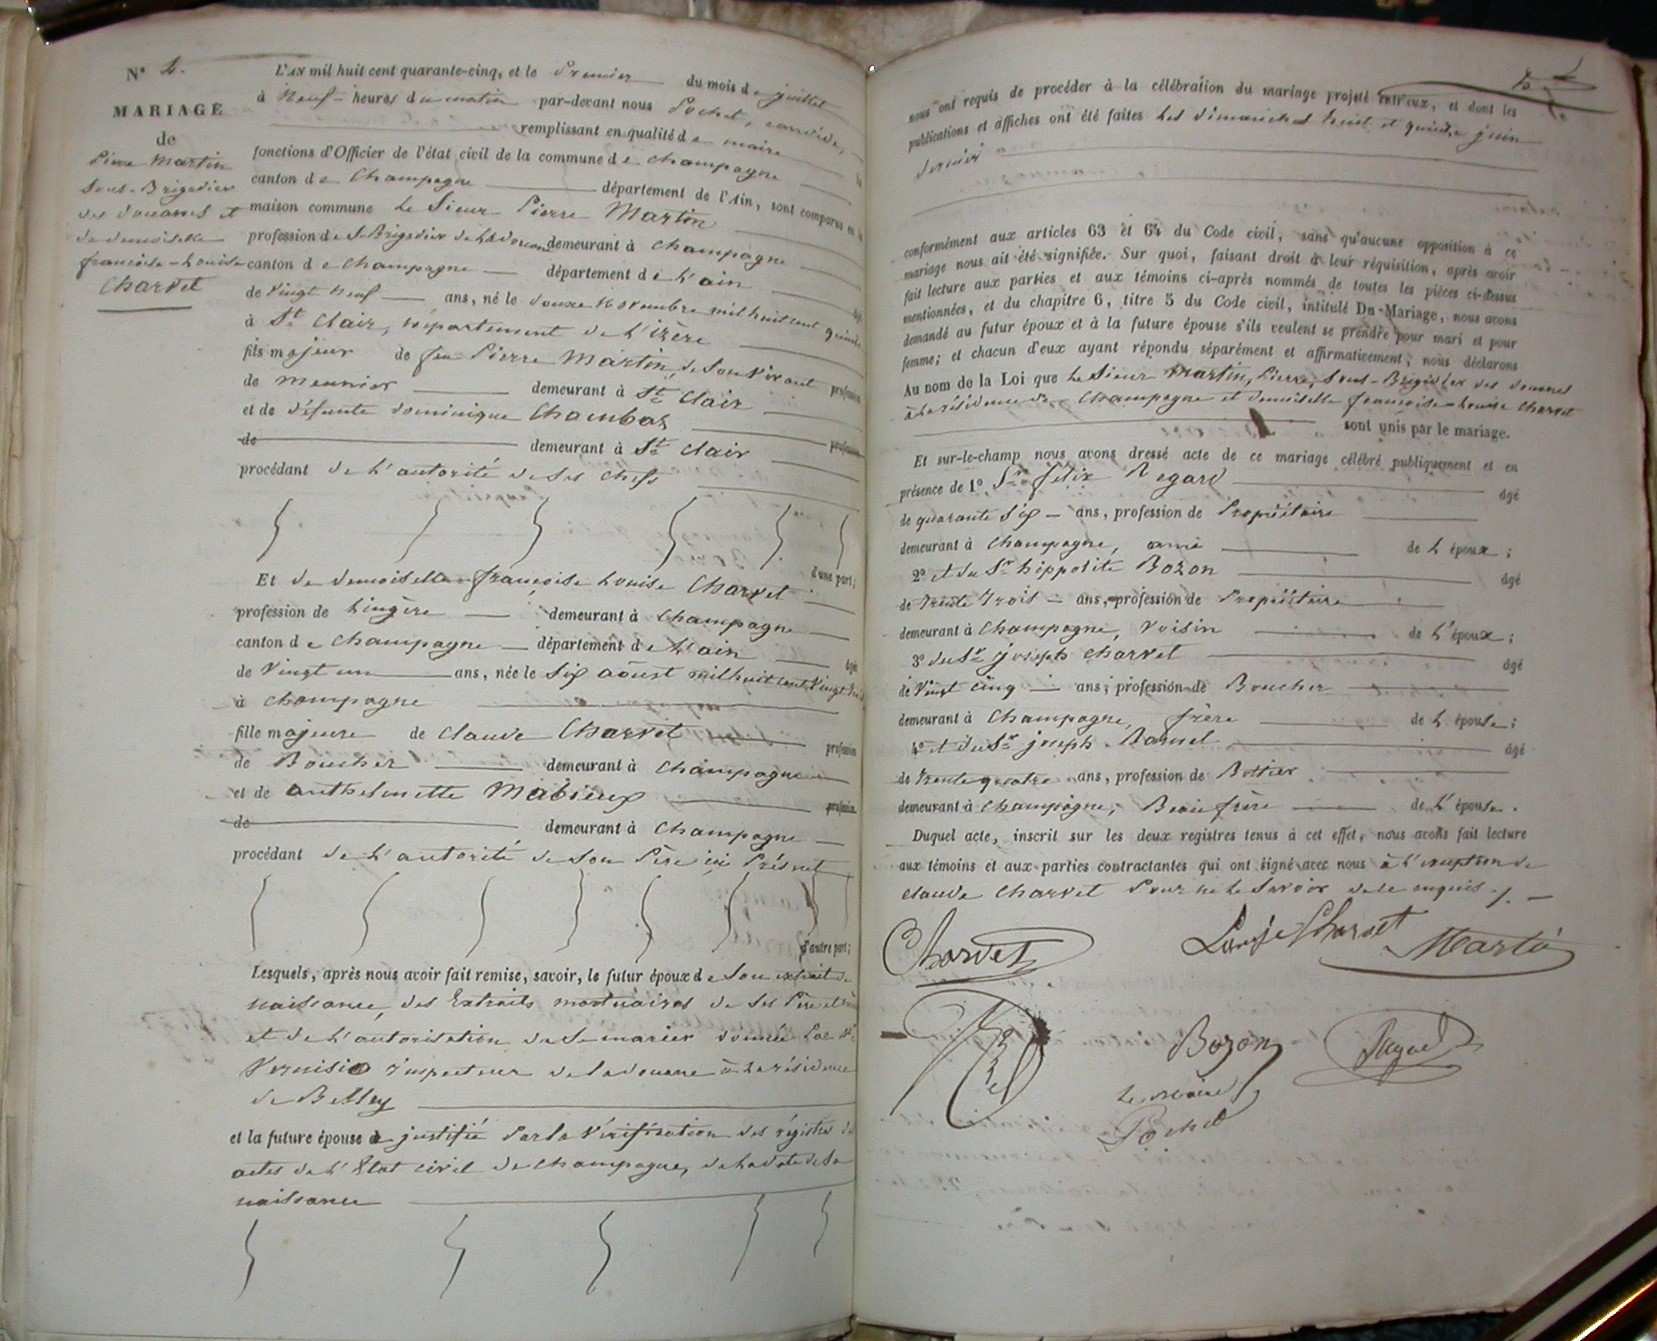 N° 4.
MARIAGE
de
Pierre Martin
Sous-Brigadier
des douanes et
de demoiselle
françoise-Louise
Charvet
L'AN mil huit cent quarante-cinq, et le Premier du mois de juillet
à Neuf heures du matin par-devant nous Pochet,
remplissant en qualité de maire
fonctions d'Officier de l'état civil de la commune de Champagne
canton de Champagne département de l'Ain, sont comparus en la
maison commune Le Sieur Pierre Martin
profession de S. Brigadier de les douanes demeurant à Champagne
canton de Champagne département de L'ain
de Vingt Neuf ans, né le douze Novembre mil huit cent quinze
à St Clair, département de L'izère
fils majeur de feu Pierre Martin, de Son Vivant profession
de meunier demeurant à St Clair
et de défunte dominique Chambaz profession
de demeurant à St Clair
procédant de L'autorité de Ses Chefs
d'une part;
Et de demoiselle françoise Louise Charvet
profession de Lingère demeurant à Champagne
canton de Champagne département de L'ain
de Vingt un ans, née le Six août mil huit cent Vingt trois
à Champagne
fille majeure de Claude Charvet profession
de Boucher demeurant à Champagne
et de anthelmette Mabieux profession
de demeurant à Champagne
procédant de L'autorité de Son Père ici Présent
d'autre part;
Lesquels, après nous avoir fait remise, savoir, le futur époux de Son extrait de
naissance, des Extraits mortuaires de Ses Père et mère
et de L'autorisation de Se marier donnée Par Mr
inspecteur de la douane à La résidence
de Belley
et la future épouse a justifié Par la Vérification des régistres des
actes de L'Etat civil de Champagne, de La date de Sa
naissance
nous ont requis de procéder à la célébration du mariage projeté entr'eux, et dont les
publications et affiches ont été faites Les dimanches huit et quinze juin
dernier
conformément aux articles 63 et 64 du Code civil, sans qu'aucune opposition à ce
mariage nous ait été signifiée. Sur quoi, faisant droit à leur réquisition, après avoir
fait lecture aux parties et aux témoins ci-après nommés de toutes les pièces ci-dessus
mentionnées, et du chapitre 6, titre 5 du Code civil, intitulé Du Mariage, nous avons
demandé au futur époux et à la future épouse s'ils veulent se prendre pour mari et pour
femme; et chacun d'eux ayant répondu séparément et affirmativement, nous déclarons
Au nom de la Loi que Le Sieur Martin, Pierre, Sous-Brigadier des douanes
à La résidence de Champagne et demoiselle françoise-Louise Charvet
sont unis par le mariage.
Et sur-le-champ nous avons dressé acte de ce mariage célébré publiquement et en
présence de 1° Sr félix Regard âgé
de quarante Six ans, profession de Propriétaire
demeurant à Champagne, ami de L'époux;
2° et du Sr hippolite Bozon âgé
de trente trois ans, profession de Propriétaire
demeurant à Champagne, Voisin de L'époux;
3° du Sr joseph Charvet âgé
de Vingt cinq ans, profession de Boucher
demeurant à Champagne, frère de L'épouse;
4° et du Sr joseph âgé
de trente quatre ans, profession de Bottier
demeurant à Champagne, Beau frère de L'épouse.
Duquel acte, inscrit sur les deux registres tenus à cet effet, nous avons fait lecture
aux témoins et aux parties contractantes qui ont signé avec nous à L'exception de
Claude Charvet Pour ne Le Savoir de ce enquis
Charvet
Louise Charvet
Martin
Bozon
Regard
Le Maire
Pochet